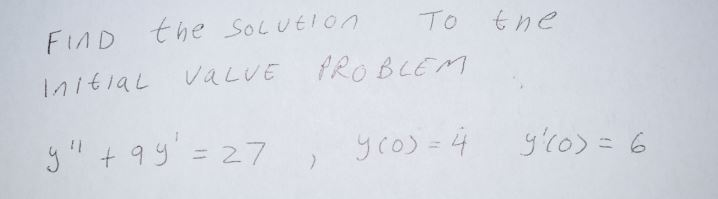 FIND the SOLUTION TO the
INITIAL VALUE PROBLEM
y'' + 9y' = 27 , y(0) = 4 y'(0) = 6